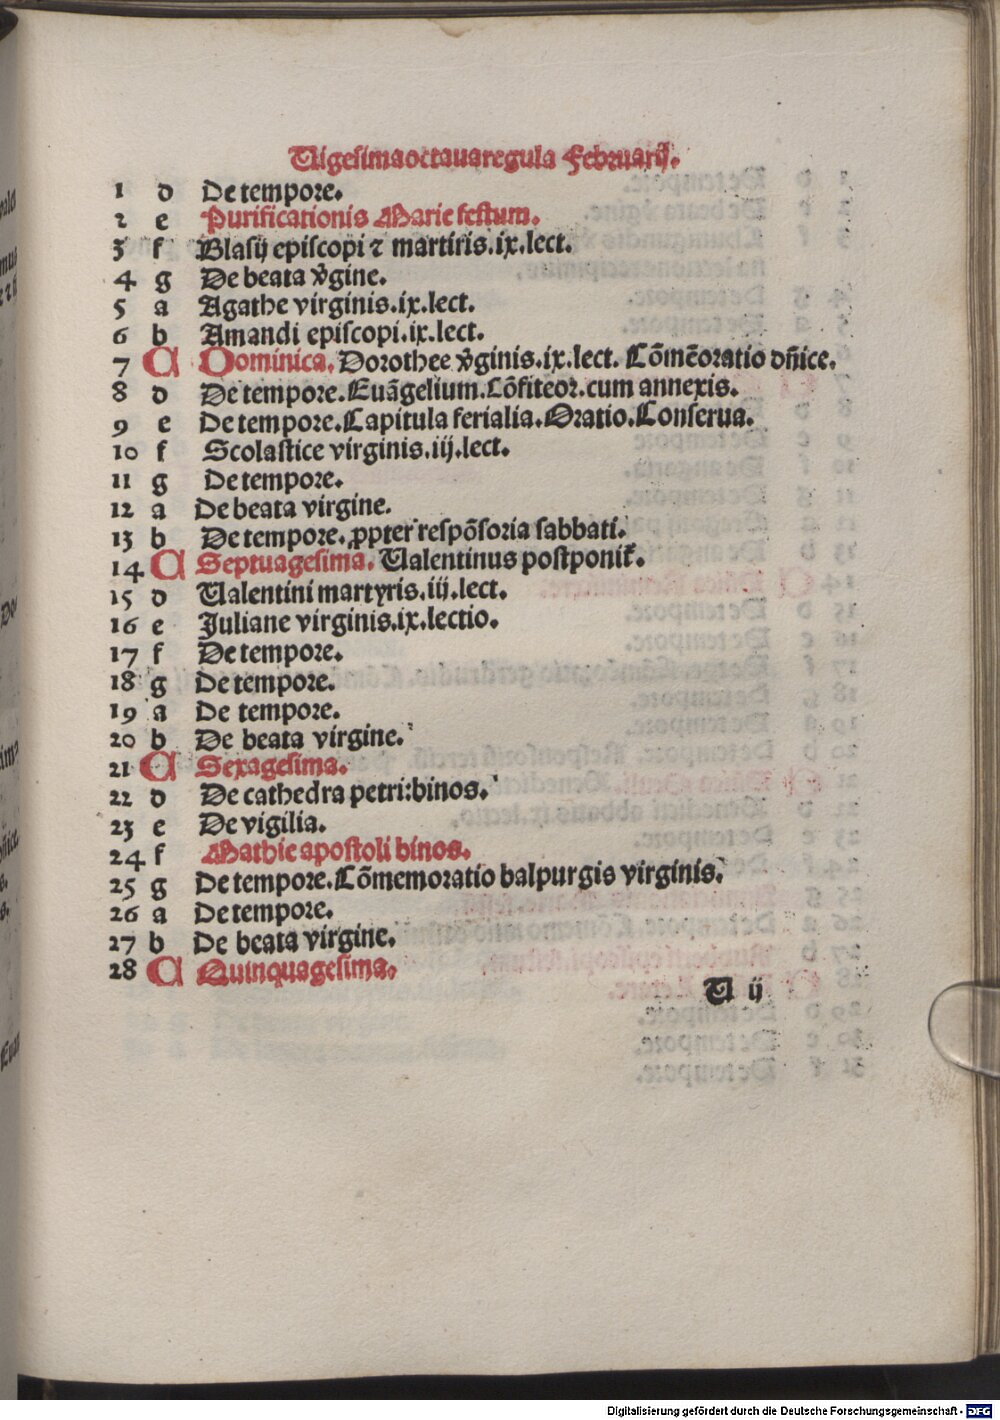 Uigesimaoctauaregula Februarij.
1 d De tempore.
2 e Purificationis Marie festum.
3 f Blasij episcopi ⁊ martiris.ix.lect.
4 g De beata v̾gine.
5 a Agathe virginis.ix.lect.
6 b Amandi episcopi.ix.lect.
7 C Dominica. Dorothee v̾ginis.ix.lect. Cōmēoratio dn̄ice.
8 d De tempore.Euāgelium.Cōfiteor.cum annexis.
9 e De tempore.Capitula ferialia.Oratio.Conserua.
10 f Scolastice virginis.iij.lect.
11 g De tempore.
12 a De beata virgine.
13 b De tempore. ꝓpter respōsoria sabbati.
14 C Septuagesima. Ualentinus postponit̄.
15 d Ualentini martyris.iij.lect.
16 e Juliane virginis.ix.lectio.
17 f De tempore.
18 g De tempore.
19 a De tempore.
20 b De beata virgine.
21 C Sexagesima.
22 d De cathedra petri:binos.
23 e De vigilia.
24 f Mathie apostoli binos.
25 g De tempore.Cōmemoratio balpurgis virginis.
26 a De tempore.
27 b De beata virgine.
28 C Quinquagesima.
U ij
Digitalisierung gefördert durch die Deutsche Forschungsgemeinschaft - DFG